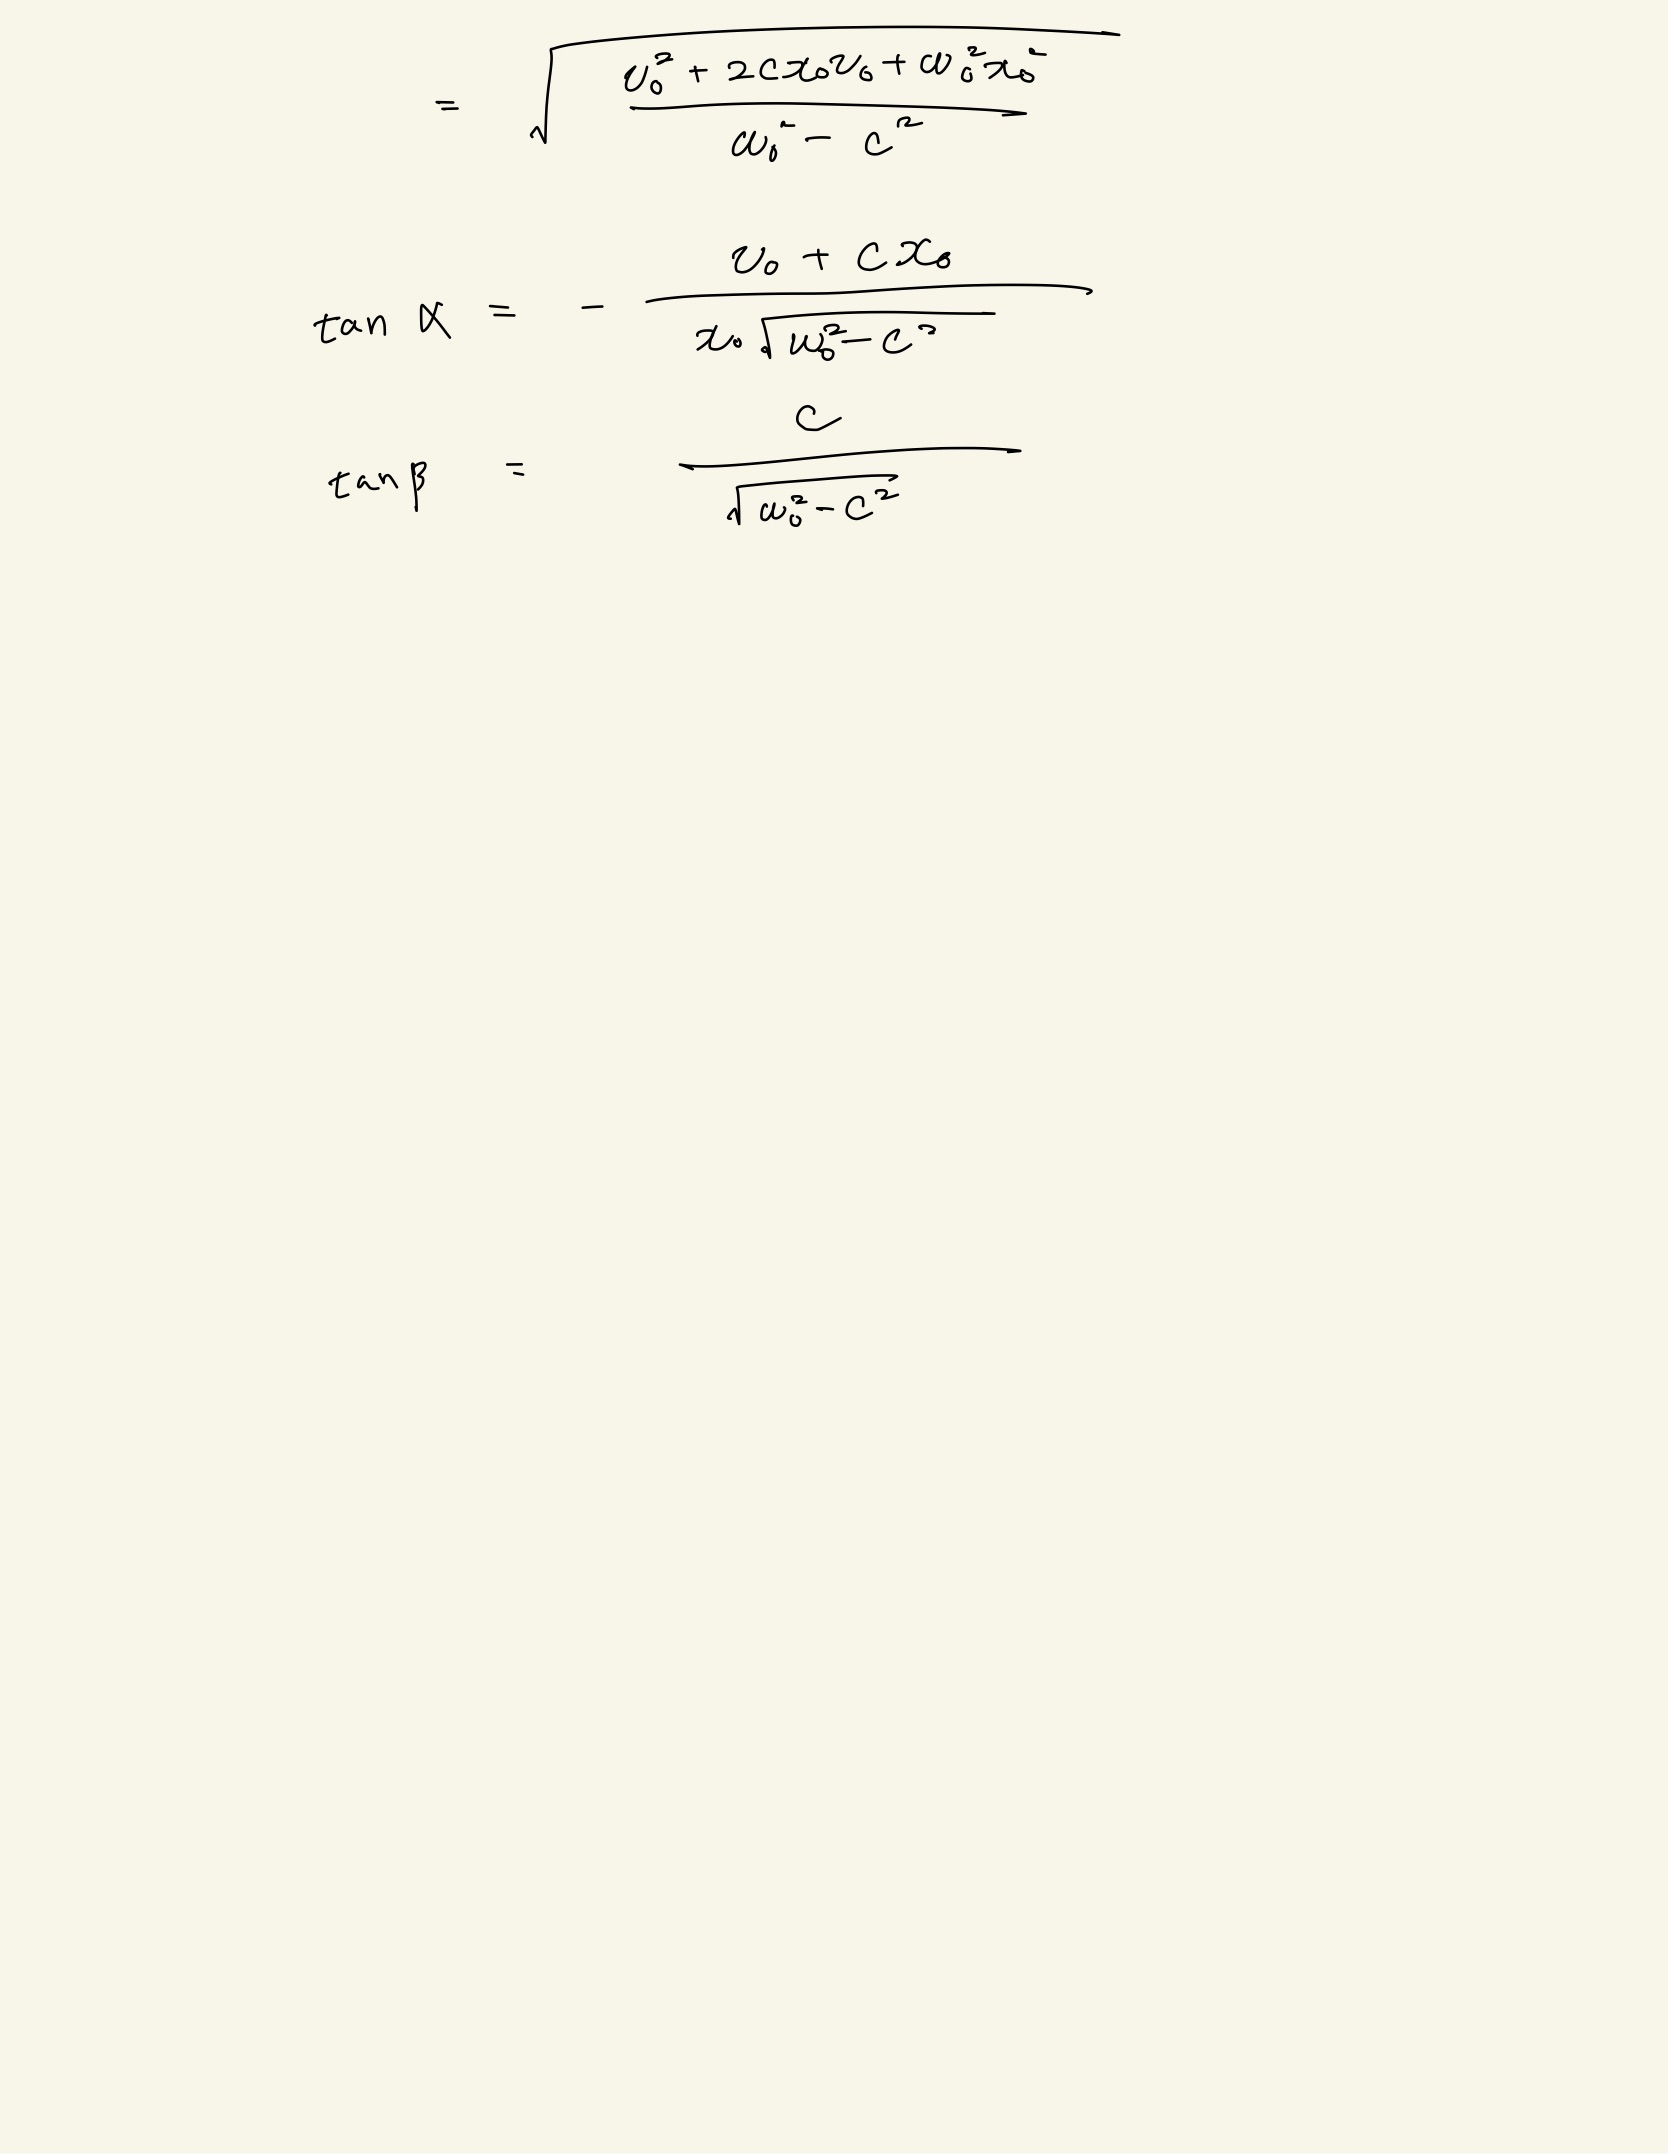 = √((v₀² + 2cx₀v₀ + ω₀²x₀²)/(ω₀² − c²))
tan α = − (v₀ + cx₀)/(x₀√(ω₀² − c²))
tan β = c/√(ω₀² − c²)